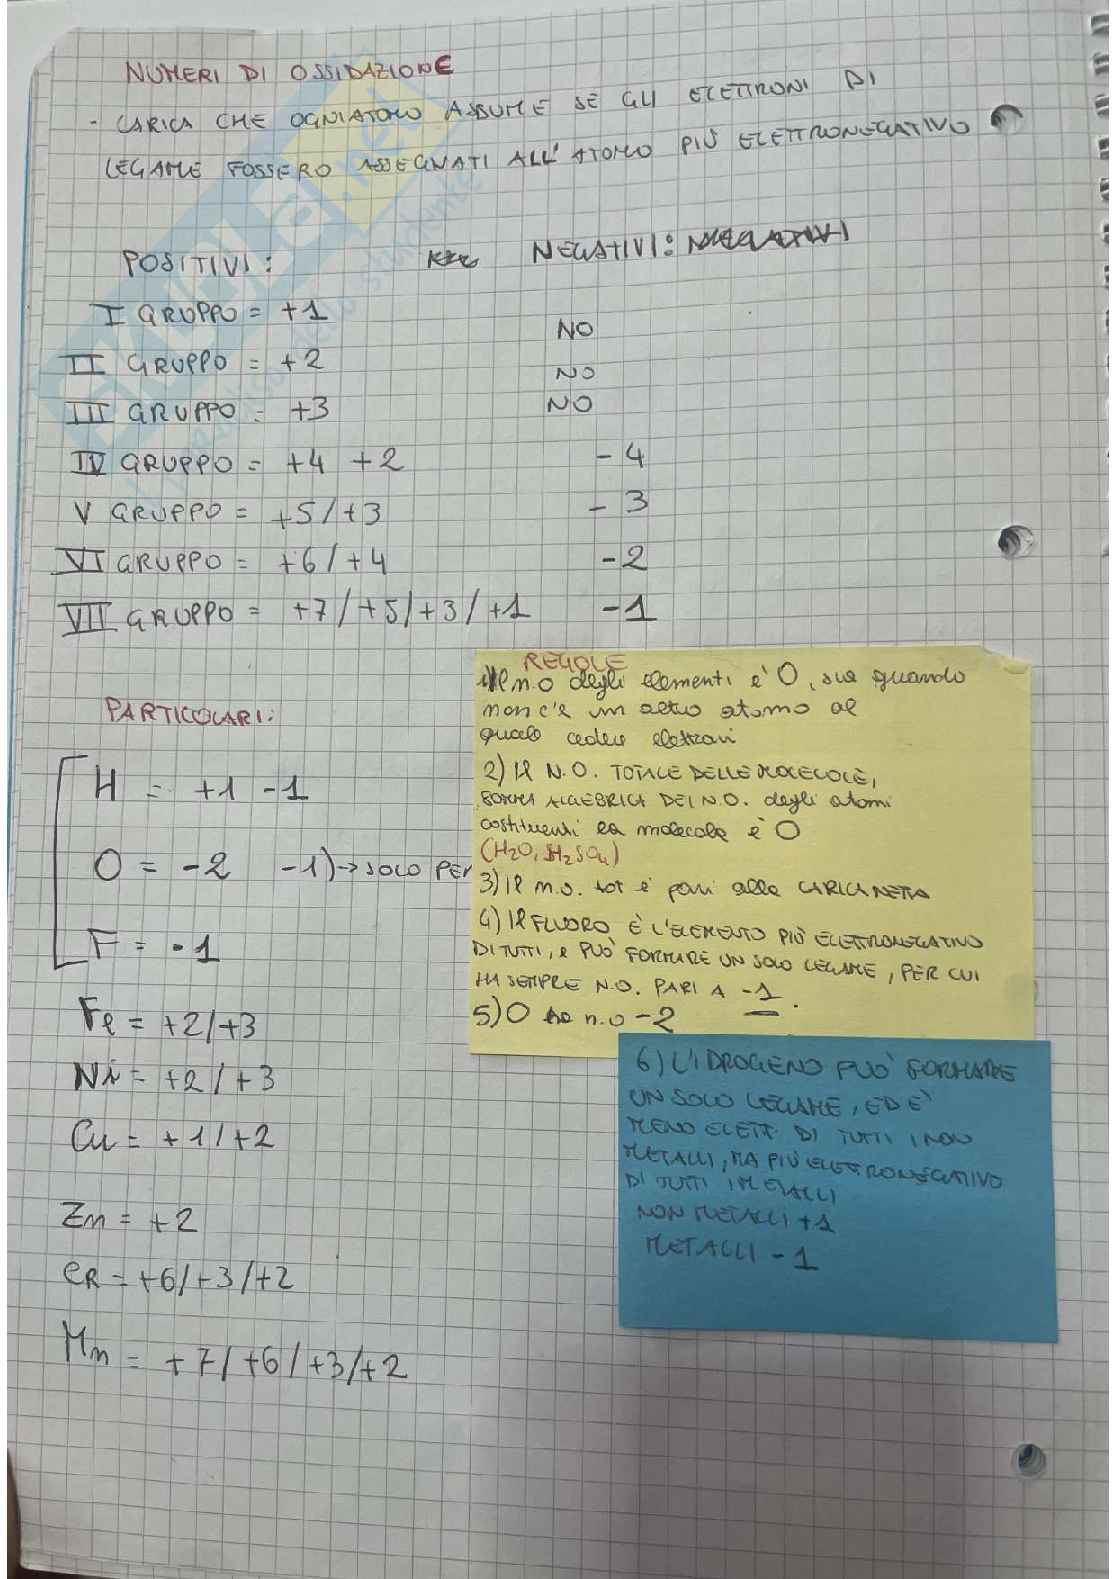 NUMERI DI OSSIDAZIONE
- CARICA CHE OGNI ATOMO ASSUME SE GLI ELETTRONI DI
LEGAME FOSSERO ASSEGNATI ALL'ATOMO PIÙ ELETTRONEGATIVO
POSITIVI: NEGATIVI:
I GRUPPO = +1 NO
II GRUPPO = +2 NO
III GRUPPO = +3 NO
IV GRUPPO = +4 +2 -4
V GRUPPO = +5/+3 -3
VI GRUPPO = +6/+4 -2
VII GRUPPO = +7/+5/+3/+1 -1
PARTICOLARI:
H = +1 -1
O = -2 -1)→SOLO PER
F = -1
Fe = +2/+3
Ni = +2/+3
Cu = +1/+2
Zn = +2
CR = +6/+3/+2
Mn = +7/+6/+3/+2
REGOLE
n.o degli elementi è 0, sia quando
non c'è un altro atomo al
quale cedere elettroni
2) Il N.O. TOTALE DELLE MOLECOLE,
SOMMA ALGEBRICA DEI N.O. degli atomi
costituenti la molecola è 0
(H2O, H2SO4)
3) Il n.o. tot è pari alla CARICA NETTA
4) Il FLUORO È L'ELEMENTO PIÙ ELETTRONEGATIVO
DI TUTTI, e PUÒ FORMARE UN SOLO LEGAME, PER CUI
HA SEMPRE N.O. PARI A -1.
5) O ha n.o -2
6) L'IDROGENO PUÒ FORMARE
UN SOLO LEGAME, ED È
MENO ELETT. DI TUTTI I NON
METALLI, MA PIÙ ELETTRONEGATIVO
DI TUTTI I METALLI
NON METALLI +1
METALLI -1